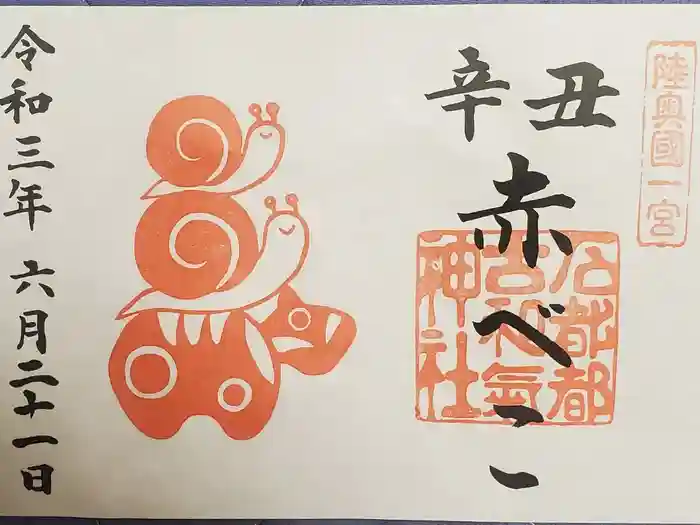 陸奥國一宮
辛丑
赤べこ
石都都
古和氣
神社
令和三年 六月二十一日